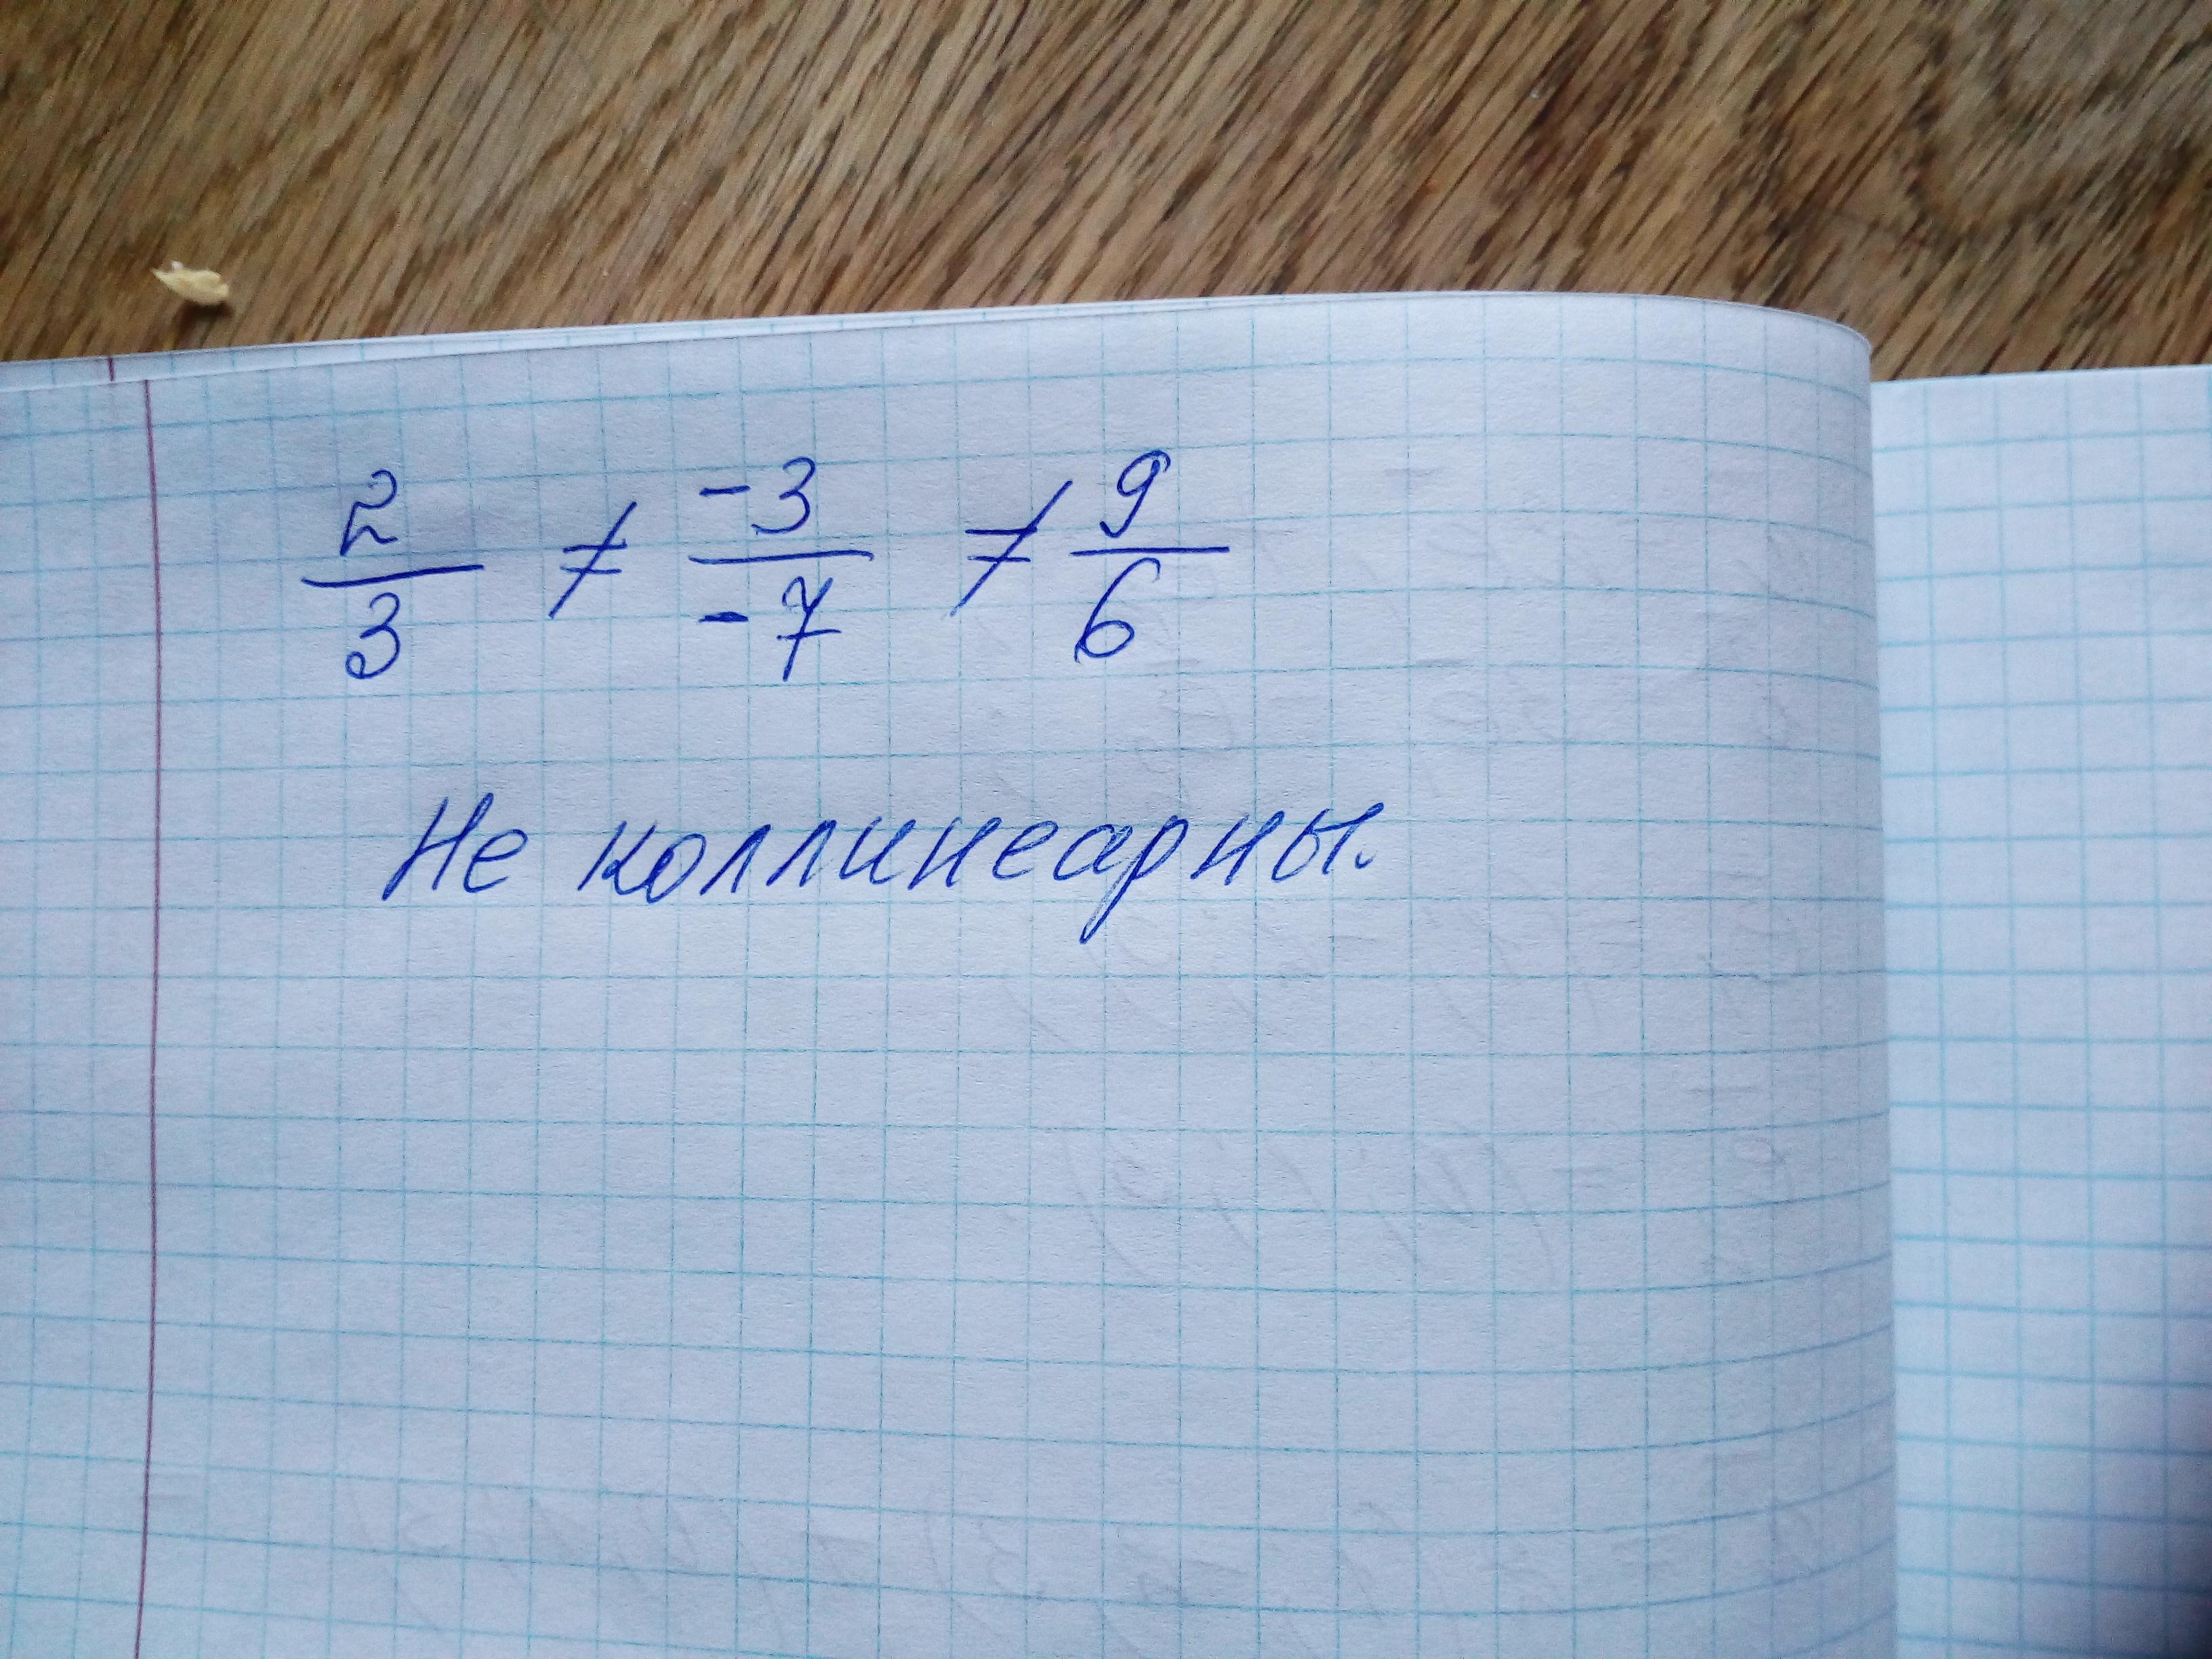 2/3 ≠ -3/-7 ≠ 9/6
Не коллинеарны.